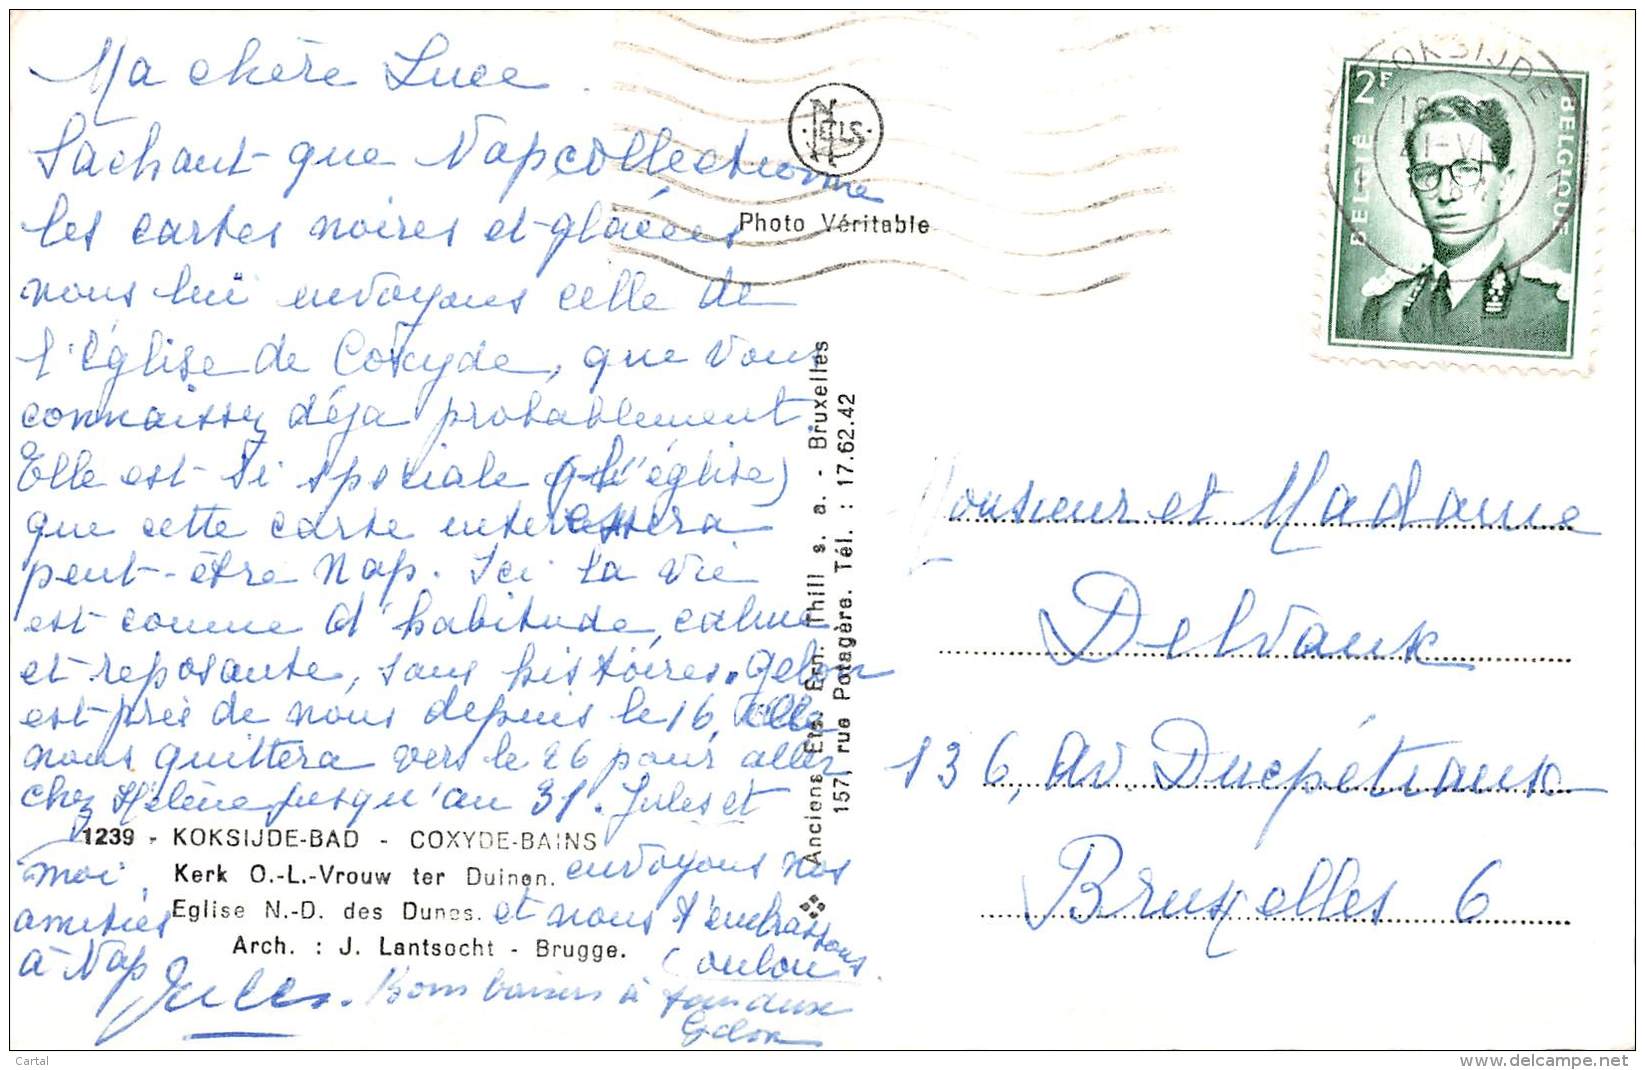 Ma chère Luce.
Sachant que Nap collectionne
les cartes noires et glacées
nous lui envoyons celle de
l'église de Coxyde, que vous
connaissez déja probablement.
Elle est si spéciale (l'église)
que cette carte interessera
peut-être Nap. Ici la vie
est comme d'habitude, calme
et reposante, sans histoires. Gelon
est près de nous depuis le 16, elle
nous quittera vers le 26 pour aller
chez Hélène jusqu'au 31. Jules et
moi, envoyons nos
amitiés et nous t'embrassons
à Nap
Loulou
Jules. Bons baisers à tous deux
Gelon
1239 - KOKSIJDE-BAD - COXYDE-BAINS
Kerk O.-L.-Vrouw ter Duinen.
Eglise N.-D. des Dunes.
Arch. : J. Lantsocht - Brugge.
NELS
Photo Véritable
Anciens Ets. Ern. Thill s. a. - Bruxelles
157, rue Potagère. Tél. : 17.62.42
KOKSIJDE
2F
BELGIË
BELGIQUE
Monsieur et Madame
Delvaux
136, Av. Ducpétiaux
Bruxelles 6
Cartal
delcampe.net